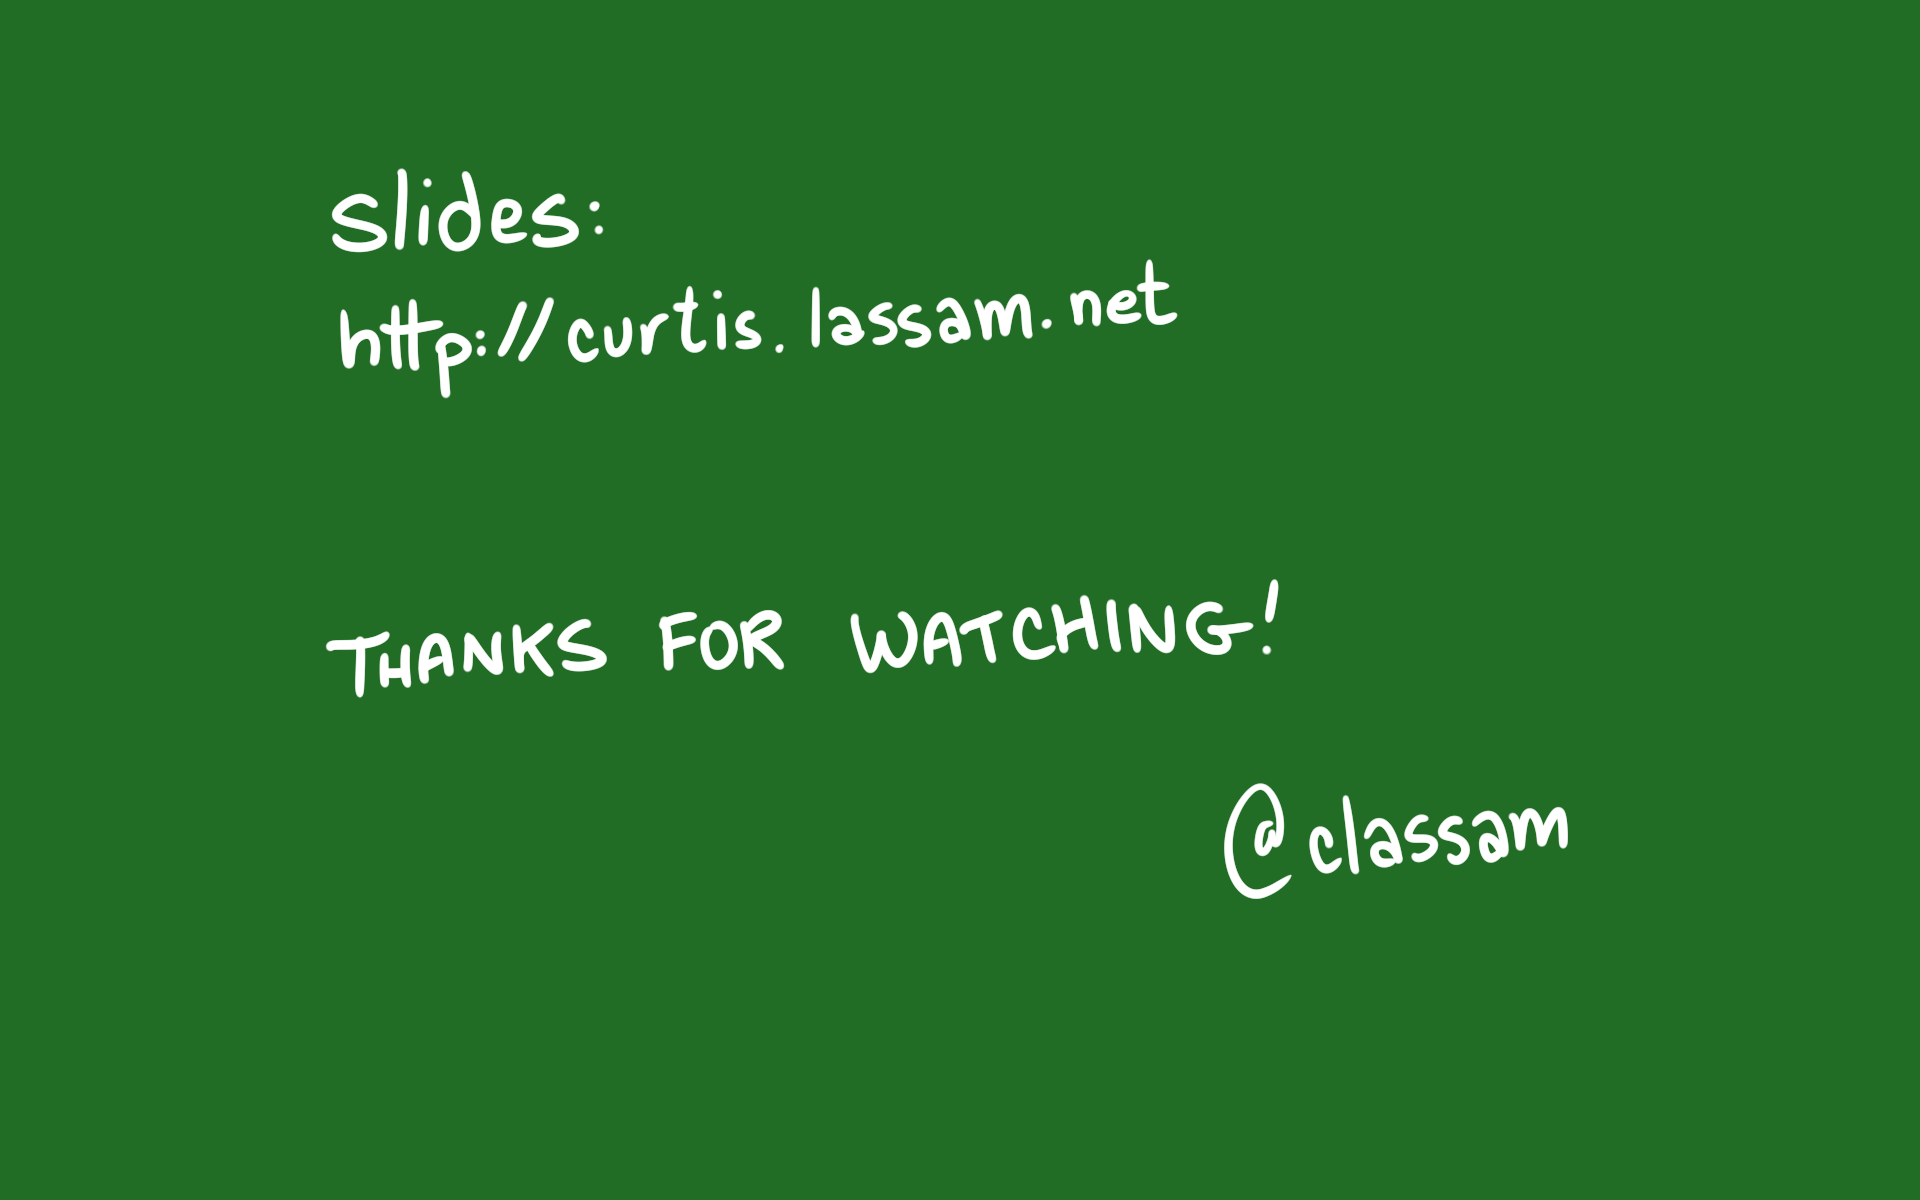 slides:
http://curtis.lassam.net
THANKS FOR WATCHING!
@classam